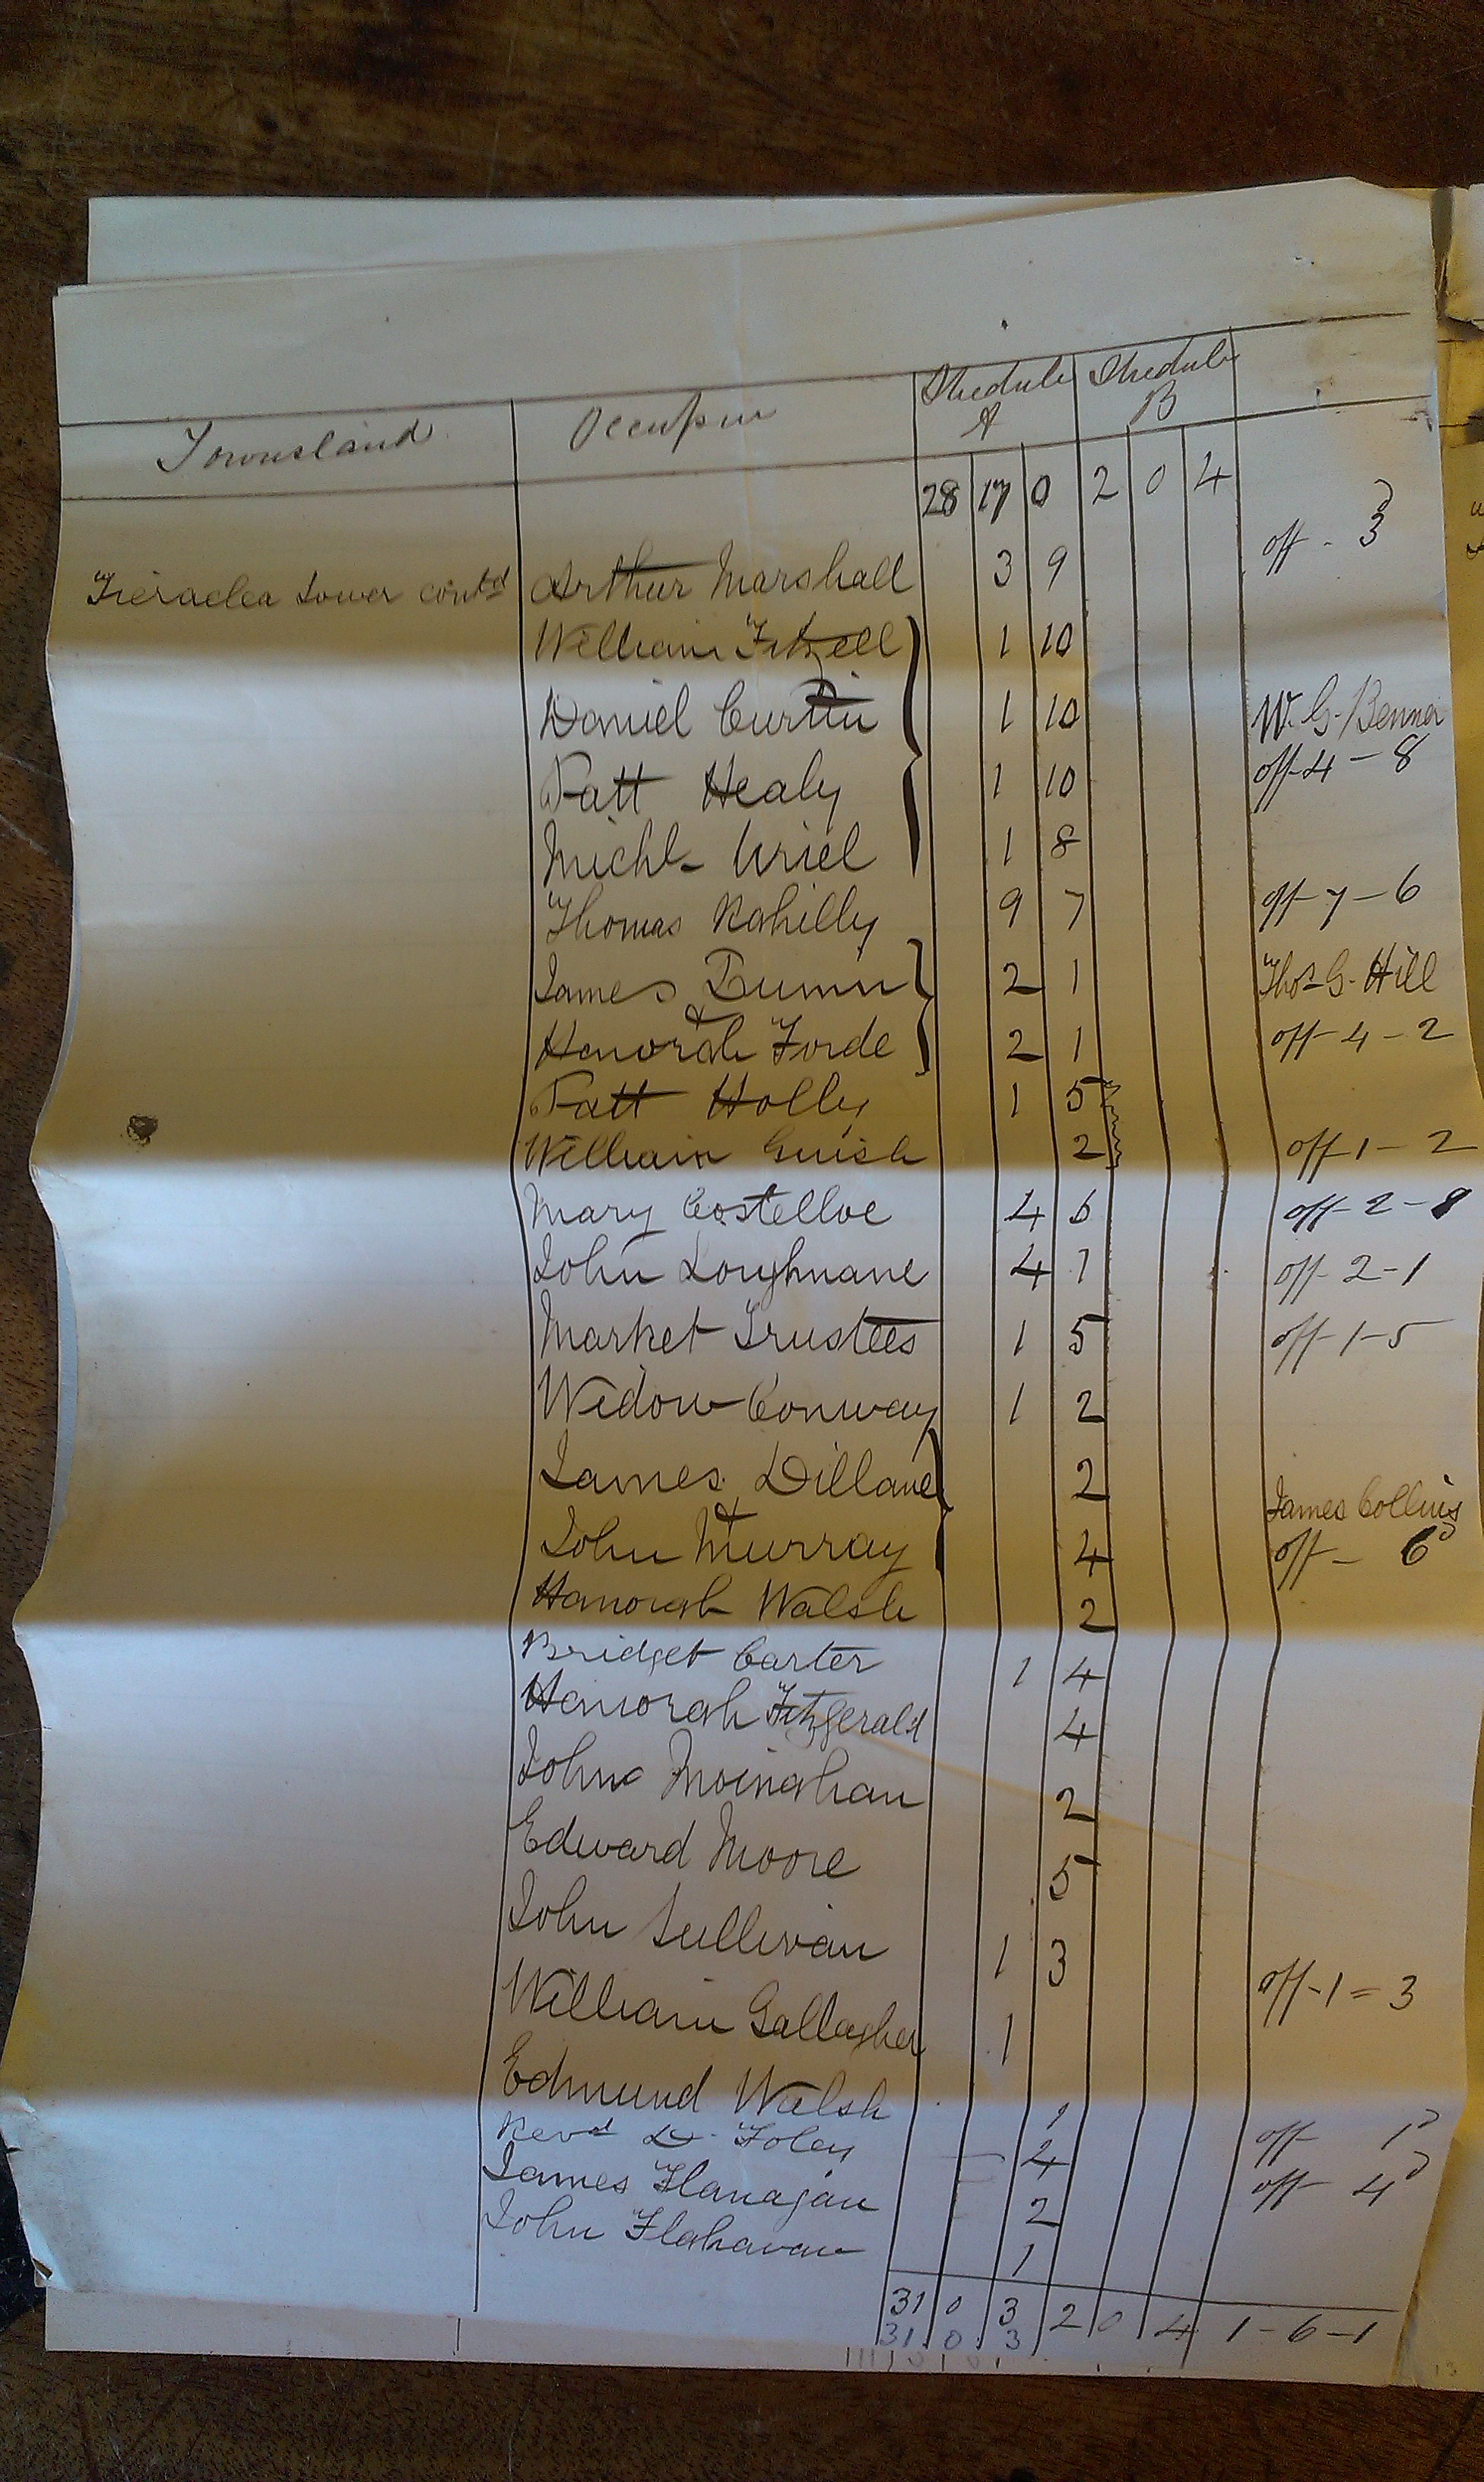 Townsland Occupier Schedule A Schedule B
28 17 0 2 0 4
Tieraclea Lower contd Arthur Marshall 3 9 off - 3d
William Fitzell 1 10
Daniel Curtin 1 10 W. G. Benner
Patt Healy 1 10 off 4 - 8
Michl Uriel 1 8
Thomas Rahilly 9 7 off 7 - 6
James Dumin 2 1 Thos G. Hill
&
Honorah Forde 2 1 off 4 - 2
Patt Holly 1 5
William Guish 2 off 1 - 2
Mary Costelloe 4 6 off 2 - 9
John Loughnane 4 1 off 2 - 1
Market Trustees 1 5 off 1 - 5
Widow Conway 1 2
James Dillane 2 James Collins
&
John Murray 4 off - 6d
Honorah Walsh 2
Bridget Carter 1 4
Honorah Fitzgerald 4
John Moinahan 2
Edward Moore 5
John Sullivan 1 3 off - 1 = 3
William Gallagher 1
Edmund Walsh 1 off 1d
Revd D. Foley - 4 off 4d
James Flanagan 2
John Flahavan 1
31 0 3 2 0 4 1 - 6 - 1
31. 0. 3